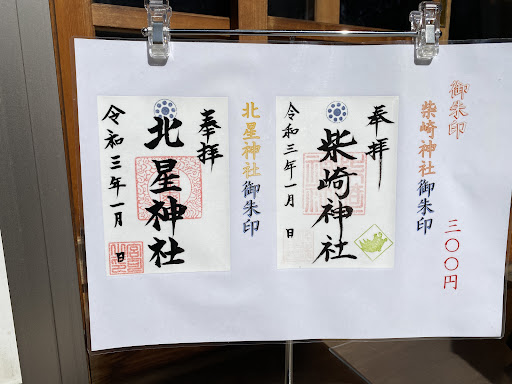 御朱印
柴崎神社御朱印
三〇〇円
奉拝
柴崎神社
令和三年一月 日
北星神社御朱印
奉拝
北星神社
令和三年一月 日